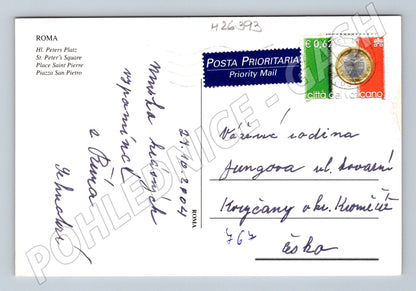 426393
ROMA
Hl. Peters Platz
St. Peter's Square
Place Saint Pierre
Piazza San Pietro
POSTA PRIORITARIA
Priority Mail
€ 0,62
Città del Vaticano
24.10.2004
Mnoho krásných
vzpomínek
z Říma
Vážená rodina
Jungova ul. kovární
Koryčany okr. Kroměříž
767
Česko
ROMA
POHLEDNICE - CASH